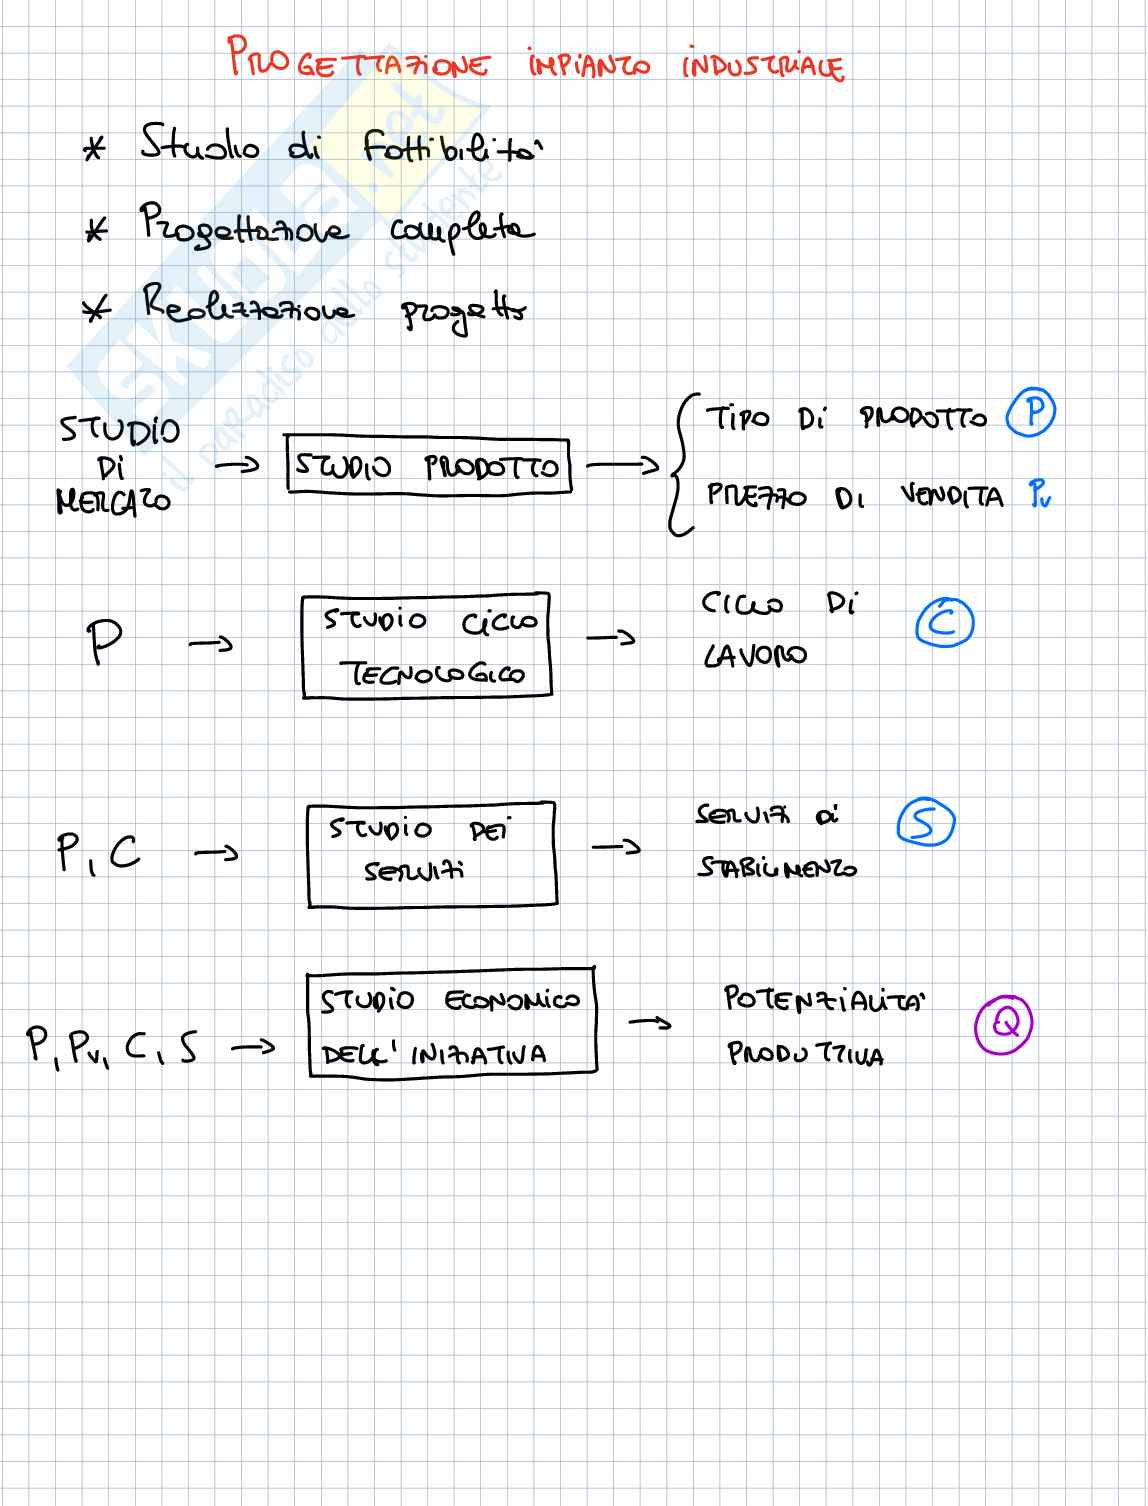 PROGETTAZIONE IMPIANTO INDUSTRIALE
* Studio di Fattibilità
* Progettazione completa
* Realizzazione progetto
STUDIO DI MERCATO → STUDIO PRODOTTO → { TIPO DI PRODOTTO P
PREZZO DI VENDITA Pv
P → STUDIO CICLO TECNOLOGICO → CICLO DI LAVORO C
P, C → STUDIO DEI SERVIZI → SERVIZI DI STABILIMENTO S
P, Pv, C, S → STUDIO ECONOMICO DELL'INIZIATIVA → POTENZIALITA' PRODUTTIVA Q
SKUOLA.net
il paradiso dello studente